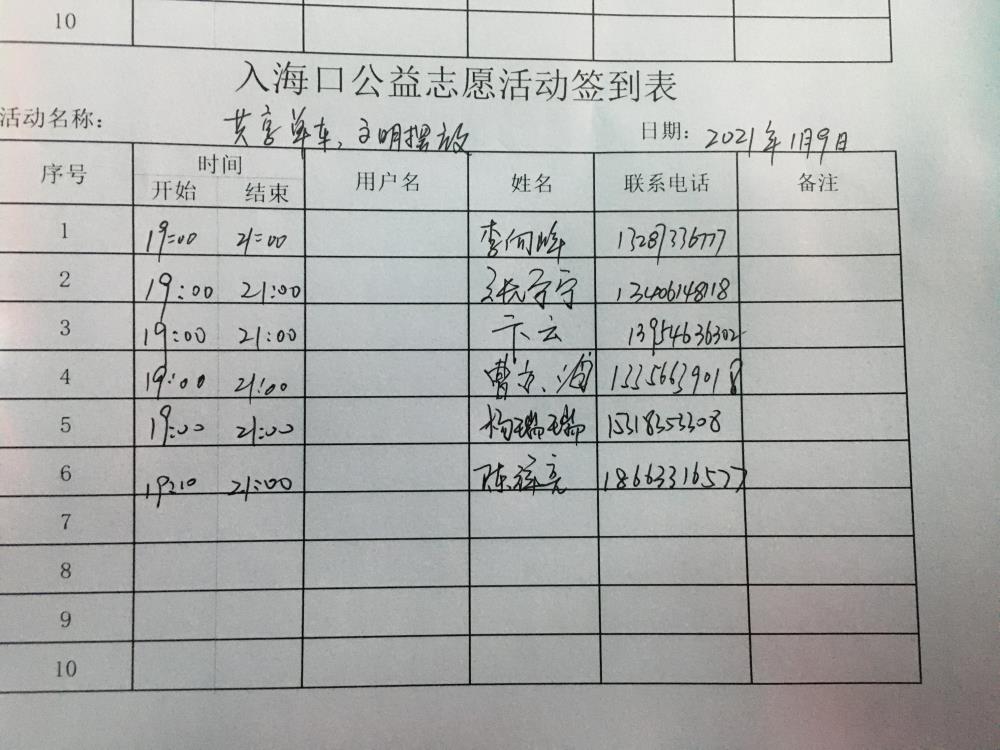 10
入海口公益志愿活动签到表
活动名称: 共享单车、文明摆放 日期: 2021年1月9日
序号 时间 用户名 姓名 联系电话 备注
开始 结束
1 19:00 21:00 李向晖 13287336777
2 19:00 21:00 张守宁 13406148118
3 19:00 21:00 卞云 13954636302
4 19:00 21:00 曹 13356639018
5 19:00 21:00 杨瑞瑞 15318353308
6 19:10 21:00 陈祥亮 18663316577
7
8
9
10